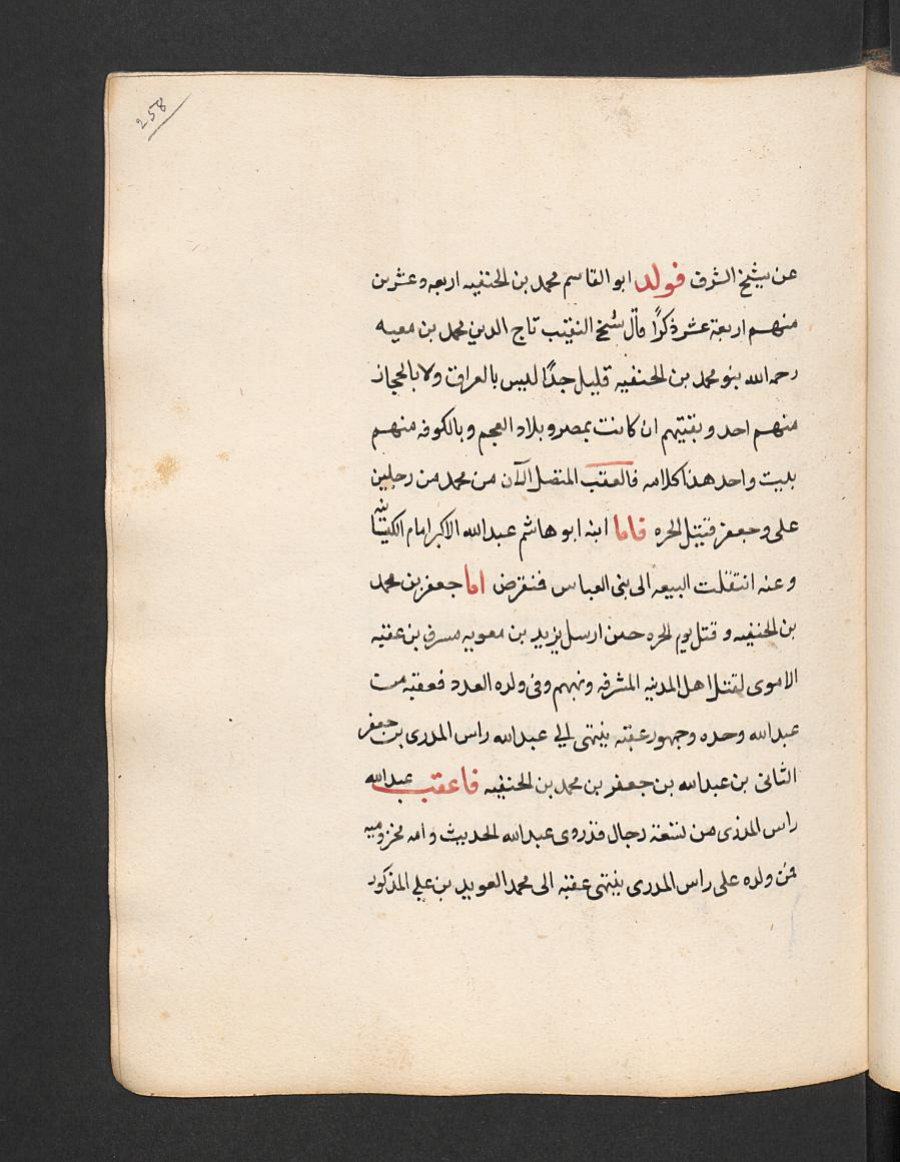 258
عن شيخ الشرف فولد ابو القاسم محمد بن الحنفيه اربعه وعشرين
منهم اربعة عشر ذكرًا قال شيخ النقيب تاج الدين محمد بن معيه
رحمه الله بنو محمد بن الحنفيه قليل جدًا ليس بالعراق ولا بالحجاز
منهم احد وبقيتهم ان كانت بمصر وبلاد العجم وبالكوفه منهم
بيت واحد هذا كلامه فالعقب المتصل الآن من محمد من رجلين
على وجعفر قتيل الحره فاما ابنه ابو هاشم عبد الله الاكبر امام الكيسانيه
وعنه انتقلت البيعه الى بنى العباس فنقرض اما جعفر بن محمد
بن الحنفيه و قتل يوم الحره حين ارسل يزيد بن معويه مسرف بن عقبه
الاموى لقتل اهل المدينه المشرفه ونهبهم وفى ولده العدد فعقبه من
عبد الله وحده وجمهور عقبه ينتهى الي عبد الله راس المدرى بن جعفر
الثانى بن عبد الله بن جعفر بن محمد بن الحنفيه فاعقب عبد الله
راس المذرى من تسعة رجال قد روى عبد الله الحديث وامه مخزوميه
فمن ولده على راس المدرى ينتهى عقبه الى محمد العويد بن علي المذكور